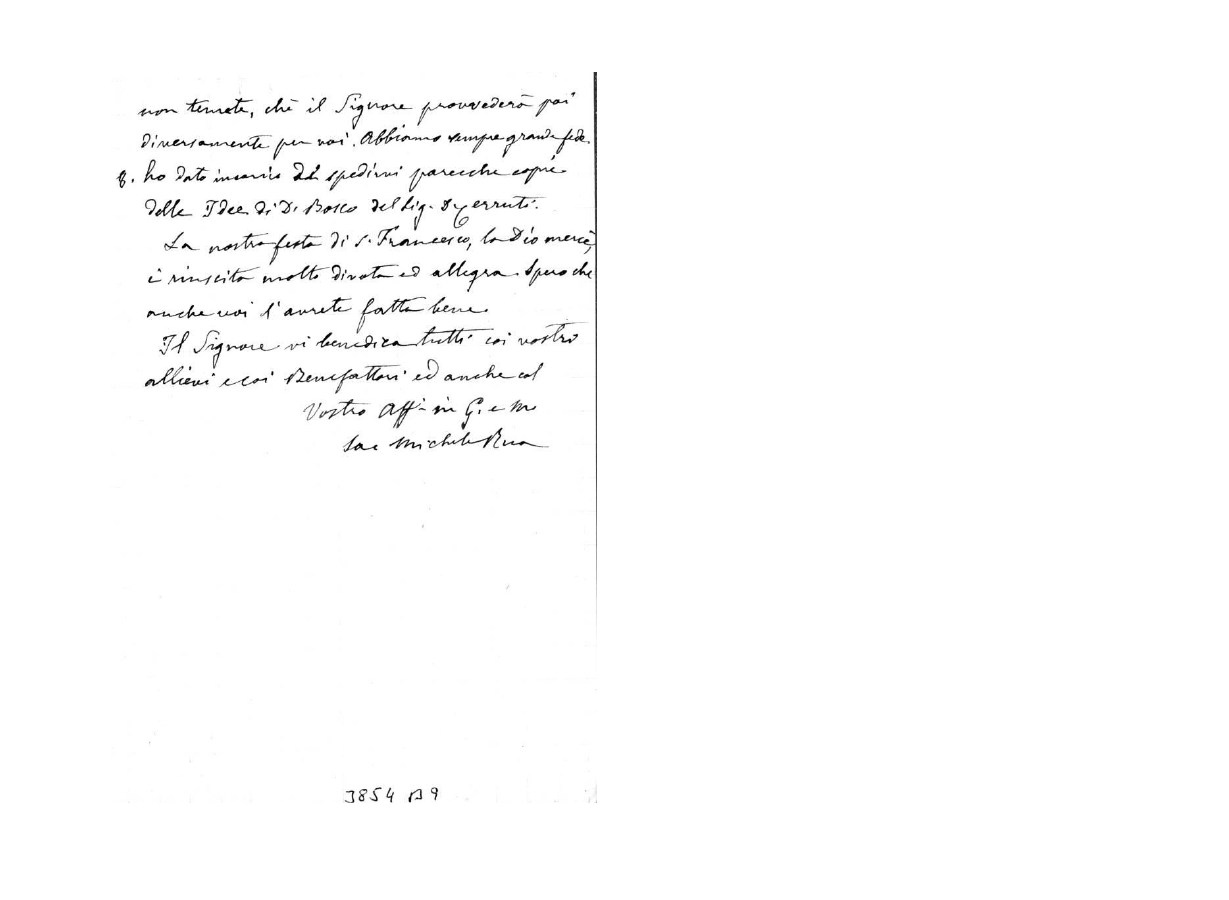 non temete, chè il Signore provvederà poi
diversamente per voi. Abbiamo sempre grande fede.
8. ho dato incarico di spedirvi parecchie copie
delle Idee di D. Bosco del Sig. D. Cerruti.
La nostra festa di S. Francesco, la Dio mercè,
è riuscita molto divota ed allegra. Spero che
anche voi l'avrete fatta bene.
Il Signore vi benedica tutti coi vostri
allievi e coi Benefattori ed anche col
Vostro Aff. in G. e M.
Sac. Michele Rua
3854 B 9